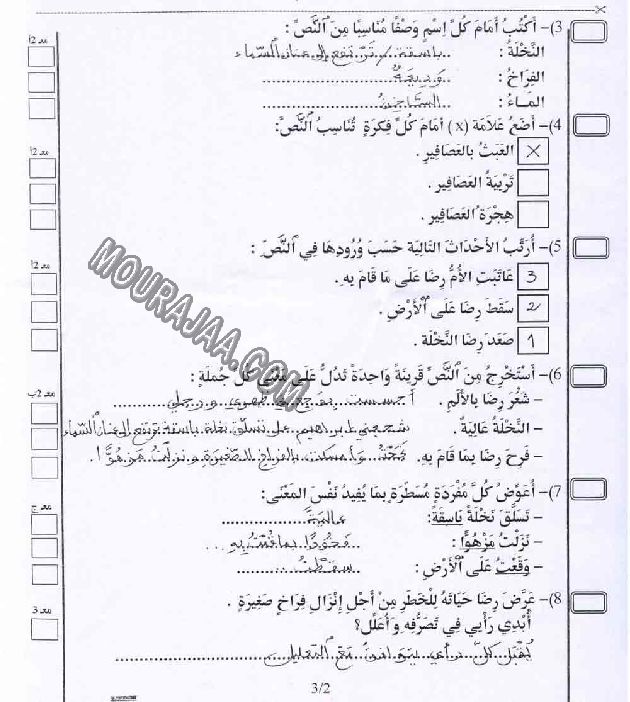 3)- أَكْتُبُ أَمَامَ كُلِّ اِسْمٍ وَصْفًا مُنَاسِبًا مِنَ ٱلنَّصِّ :
النَّخْلَةُ : باسقة / ترتفع إلى عنان السّماء
الفِرَاخُ : وديعة
المَاءُ : السّاخن
4)- أَضَعُ عَلاَمَةَ (x) أَمَامَ كُلِّ فِكْرَةٍ تُنَاسِبُ ٱلنَّصَّ:
X العَبَثُ بِالعَصَافِيرِ .
تَرْبِيَةُ العَصَافِيرِ .
هِجْرَةُ العَصَافِيرِ .
5)- أُرَتِّبُ الأَحْدَاثَ التَّالِيَةَ حَسَبَ وُرُودِهَا فِي ٱلنَّصِّ :
3 عَاتَبَتِ الأُمُّ رِضَا عَلَى مَا قَامَ بِهِ.
2 سَقَطَ رِضَا عَلَى ٱلأَرْضِ .
1 صَعَدَ رِضَا النَّخْلَةَ .
6)- أَسْتَخْرِجُ مِنَ ٱلنَّصِّ قَرِينَةً وَاحِدَةً تَدُلُّ عَلَى مَعْنَى كُلِّ جُمْلَةٍ :
- شَعُرَ رِضَا بِالأَلَمِ . أحسست بوجع في ورجلي
- النَّخْلَةُ عَالِيَةٌ . شجعني ابراهيم على تسلّق نخلة باسقة ترتفع إلى عنان السّماء
- فَرِحَ رِضَا بِمَا قَامَ بِهِ. وأمسكت بالفراخ الصّغيرة و نزلت مزهوّا .
7)- أُعَوِّضُ كُلَّ مُفْرَدَةٍ مُسَطَّرَةٍ بِمَا يُفِيدُ نَفْسَ المَعْنَى:
- تَسَلَّقَ نَخْلَةً بَاسِقَةً: عاليةً
- نَزَلْتُ مَزْهُوًّا : فخورًا بما قمت به
- وَقَعْتُ عَلَى ٱلأَرْضِ : سقطت
8)- عَرَّضَ رِضَا حَيَاتَهُ لِلْخَطَرِ مِنْ أَجْلِ إِنْزَالِ فِرَاخٍ صَغِيرَةٍ .
أُبْدِي رَأْيِي فِي تَصَرُّفِهِ وَأُعَلِّلُ؟
يُقبل كلّ رأي مع التعليل
3/2
مع 2أ
مع 2أ
مع 2أ
مع 2ب
مع ج
مع 3
MOURAJAA.COM